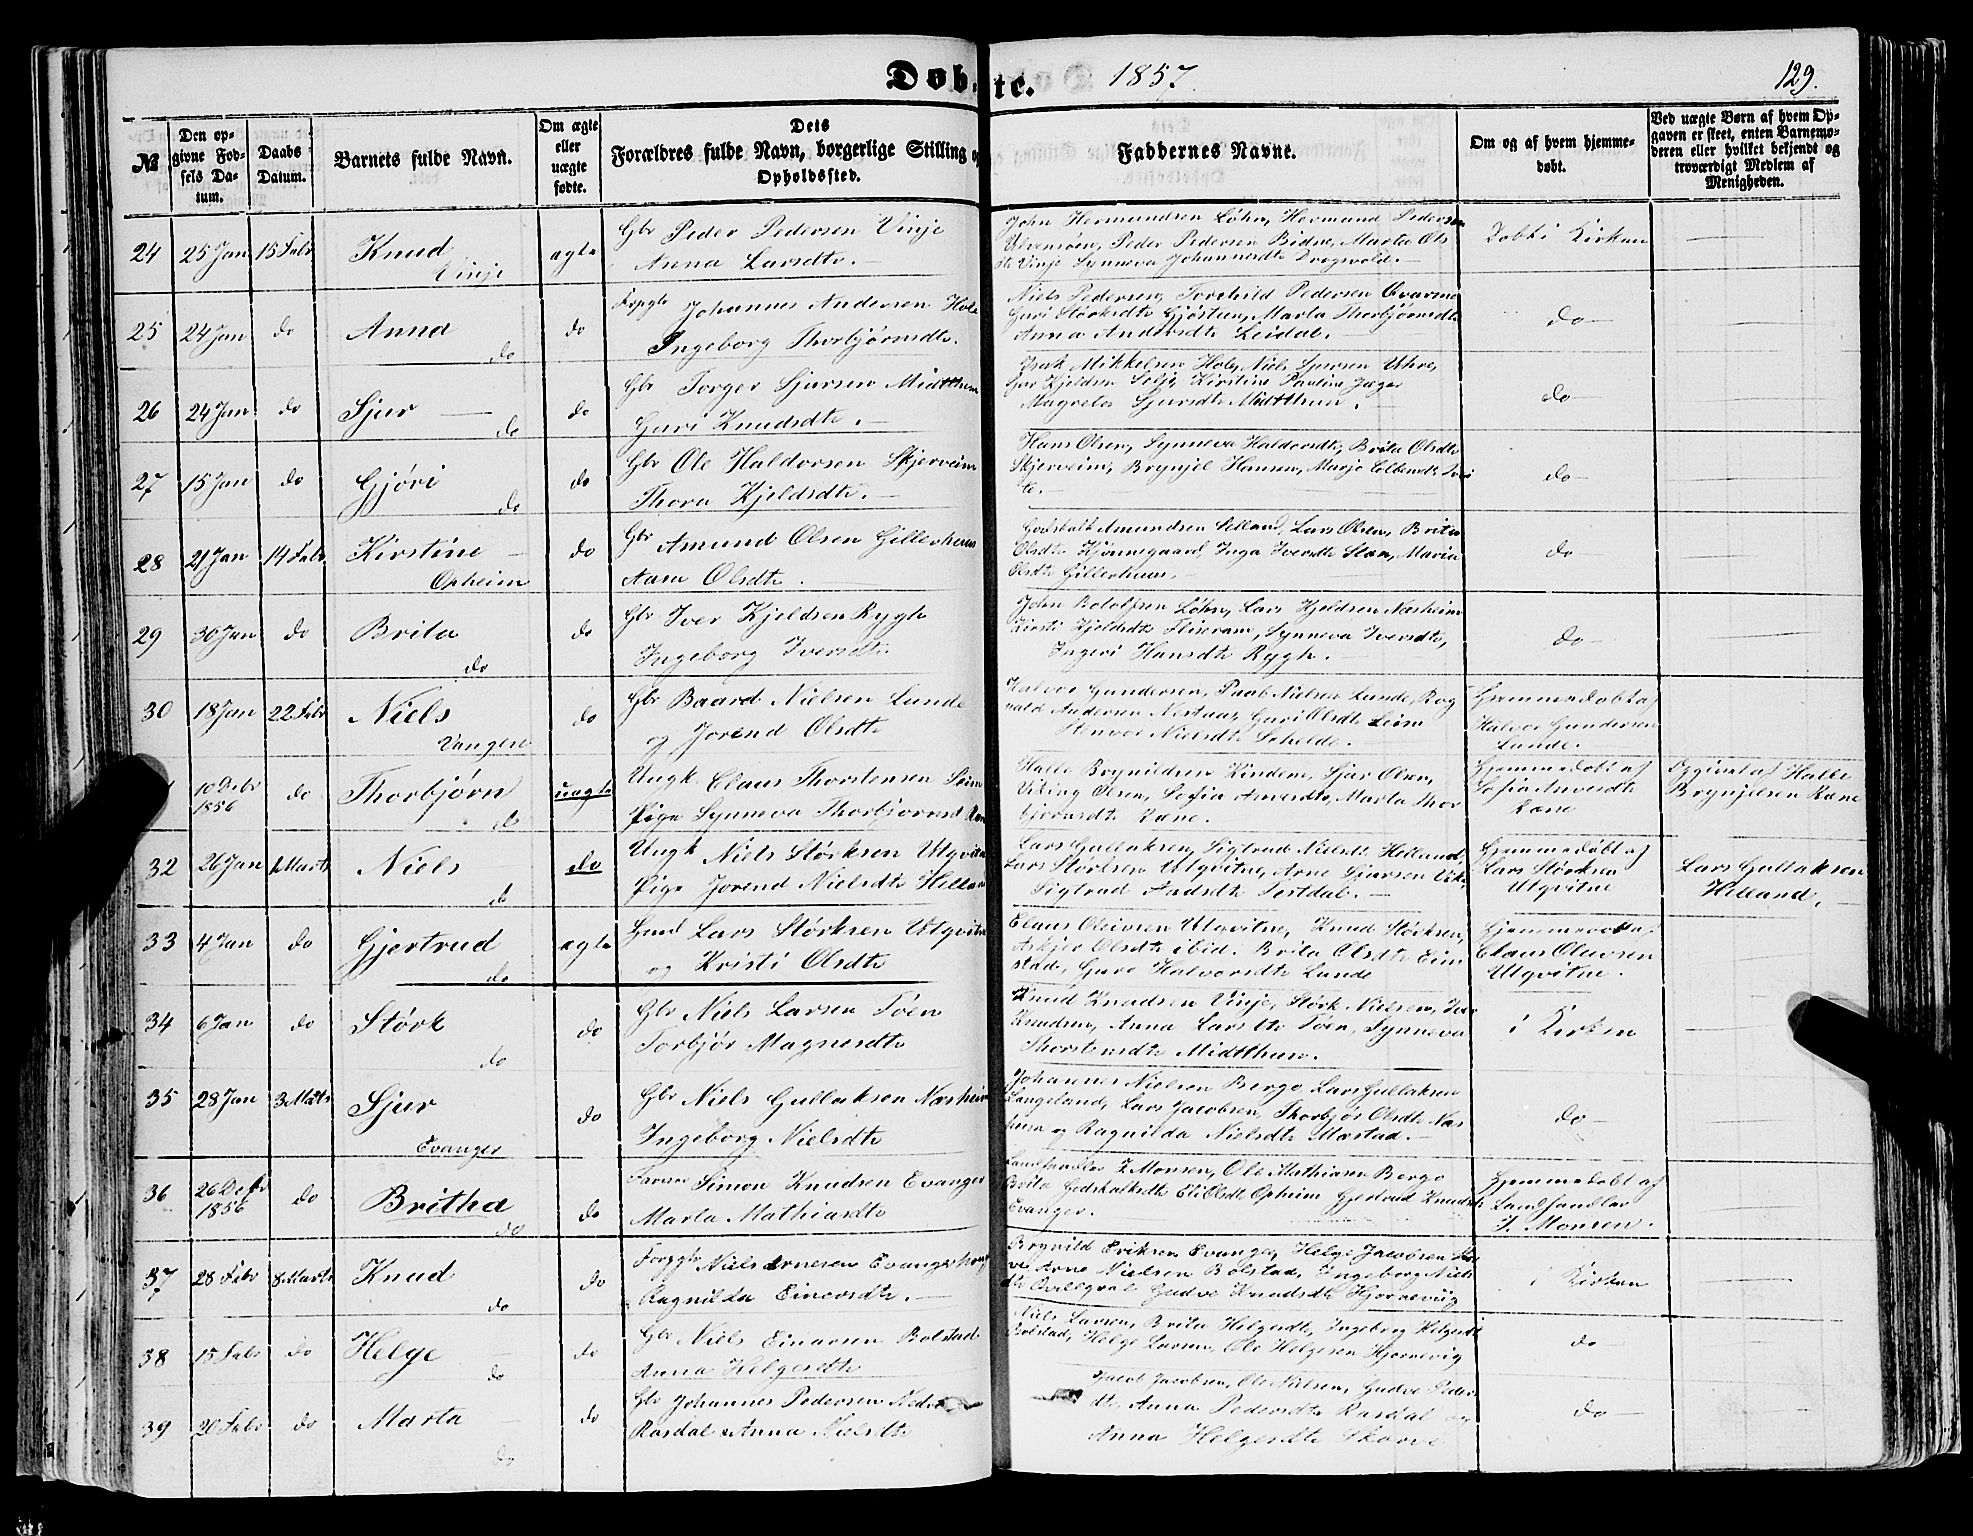 Døbte. 1857. 129.
№ | Den opgivne Fødsels Datum. | Daabs Datum. | Barnets fulde Navn. | Om ægte eller uægte fødte. | Dets Forældres fulde Navn, borgerlige Stilling og Opholdssted. | Faddernes Navne. | Om og af hvem hjemmedøbt. | Ved uægte Børn af hvem Opgaven er skeet, enten Barnemoderen eller hvilket bekjendt og troværdigt Medlem af Menigheden.
24 | 25 Jan | 15 Febr | Knud
Vinje | ægte | Gbr Peder Pedersen Vinje
Anna Larsdtr. | John Hermundsen Løhn, Hermund Pedersen
Peder Pedersen Bidne, Marta Ols
dtr Vinje Synneva Johannesdtr Drogsvold. | Døbt i Kirken
25 | 24 Jan | do | Anna
do | do | Johannes Andersen Hole
Ingeborg Thorbjørnsdtr. | Niels Pedersen, Torchild Pedersen
Guri Størksdtr Gjøstein, Marta Thorbjørnsdtr
Anna Andersdtr Leidal. | do
26 | 24 Jan | do | Sjur
do | do | Gbr Torger Sjursen Midtthun
Guri Knudsdtr. | Isak Mikkelsen Hole, Niels Sjursen
Kjeldsen Selje Kirstine Pauline Jæger
Magrete Sjursdtr Midtthun. | do
27 | 15 Jan | do | Gjøri
do | do | Gbr Ole Haldorsen Skjerveim
Thora Kjeldsdtr. | Hans Olsen, Synneva Haldorsdtr, Brita Olsdtr
Skjerveim, Brynjel Hansen, | do
28 | 21 Jan | 14 Febr | Kirstine
Opheim | do | Gbr Amund Olsen Gillerhuus
Olsdtr. | Godskalk Amundsen Helland, Lars Olsen, Brita
Olsdtr Kjønnegaard, Inga Iversdtr Maria
Olsdtr Gillerhuus. | do
29 | 30 Jan | do | Brita
do | do | Gbr Iver Kjeldsen Rygh
Ingeborg Iversdtr. | John Botolfsen Løhn, Lars Kjeldsen Næsheim
Kirsti Kjeldsdtr Flisram, Synneva Iversdtr,
Ingeri Hansdtr Rygh. | do
30 | 18 Jan | 22 Febr | Niels
Vangen | do | Gbr Baard Nielsen Lunde
og Jorend Olsdtr | Halvor Gundersen, Nielsen Lunde, Rog
vald Andersen Guri Olsdtr
Nielsdtr | Hjemmedøbt af
Halvor Gundersen
Lunde.
10 Decbr
1856 | do | Thorbjørn
do | uægte | Ungk Claus Thorstensen
Pige Synneva Thorbjørnsd | Halle Brynildsen Kindem, Sjur Olsen,
Viking Olsen, Sofia Marta Thor
bjørnsdtr | Hjemmedøbt af
Sofia | Opgivet af Halle
Brynjelsen
32 | 26 Jan | 1 Marts | Niels
do | do | Ungk Niels Størksen Utqvitne
Pige Jorend Nielsdtr Helland | Lars Gullaksen, Sigtrud Nielsdtr Helland,
Lars Størksen Utqvitne, Arne Sjursen
Sigtrud | Hjemmedøbt af
Lars Størksen
Utqvitne | Lars Gullaksen
Helland,
33 | 4 Jan | do | Gjertrud
do | ægte | Lars Størksen Utqvitne
og Kristi Olsdtr | Claus Oleivsen Utqvitne, Knud Størksen,
Olsdtr ibid. Brita Olsdtr Eim
stad, Guro Halvorsdtr Lunde | Hjemmedøbt af
Claus Oleivsen
Utqvitne.
34 | 6 Jan | do | Størk
do | do | Gbr Niels Larsen Tøen
Torbjør Magnesdtr | Knud Knudsen Vinje, Størk Nielsen, Iver
Knudsen, Anna Larsdtr Tøen, Synneva
Thorstensdtr Midtthun. | i Kirken
35 | 28 Jan | 3 Marts | Sjur
Evanger | do | Gbr Niels Gullaksen Næsheim
Ingeborg Nielsdtr | Johannes Nielsen Berge Lars Gullaksen
Langeland, Lars Jacobsen, Thorbjør Olsdtr Næs
heim og Ragnilda Nielsdtr Mæstad. | do
36 | 26 Decbr
1856 | do | Britha
do | do | Simon Knudsen Evanger
Marta Mathiasdtr | Landhandler J. Monsen, Ole Mathiasen Berge
Brita Godskalksdtr Eli Olsdtr Opheim Gjertrud Knudsdtr
Evanger. | Hjemmedøbt af
Landhandler
J. Monsen.
37 | 28 Febr | 8 Marts | Knud
do | do | Niels Arnesen Evanger
Ragnilda Einersdtr. | Brynild Eriksen Evanger, Helge Jacobsen
Arne Nielsen Bolstad, Ingeborg Niels
dtr Gudve Knudsdtr Hjørnevig | i Kirken
38 | 15 Febr | do | Helge
do | do | Gbr Niels Einarsen Bolstad
Anna Helgesdtr | Niels Larsen, Brita Helgesdtr, Ingeborg Helgesdtr
Bolstad, Helge Larsen, Ole Helgesen Hjørnevig | do
39 | 20 Febr | do | Marta
do | do | Gbr Johannes Pedersen Nedre
Rasdal Anna Nielsdtr | Jacob Jacobsen, Ole Nielsen, Gudve Peders
dtr, Anna Pedersdtr Rasdal og
Anna Helgesdtr | do